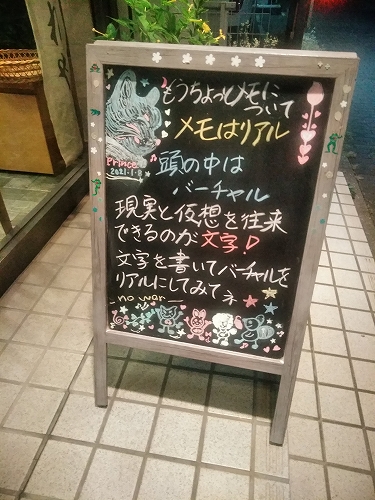 もうちょっとメモに
ついて
メモはリアル
頭の中は
バーチャル
Prince
2021.1.8
現実と仮想を往来
できるのが文字!
文字を書いてバーチャルを
リアルにしてみてネ
-no war-